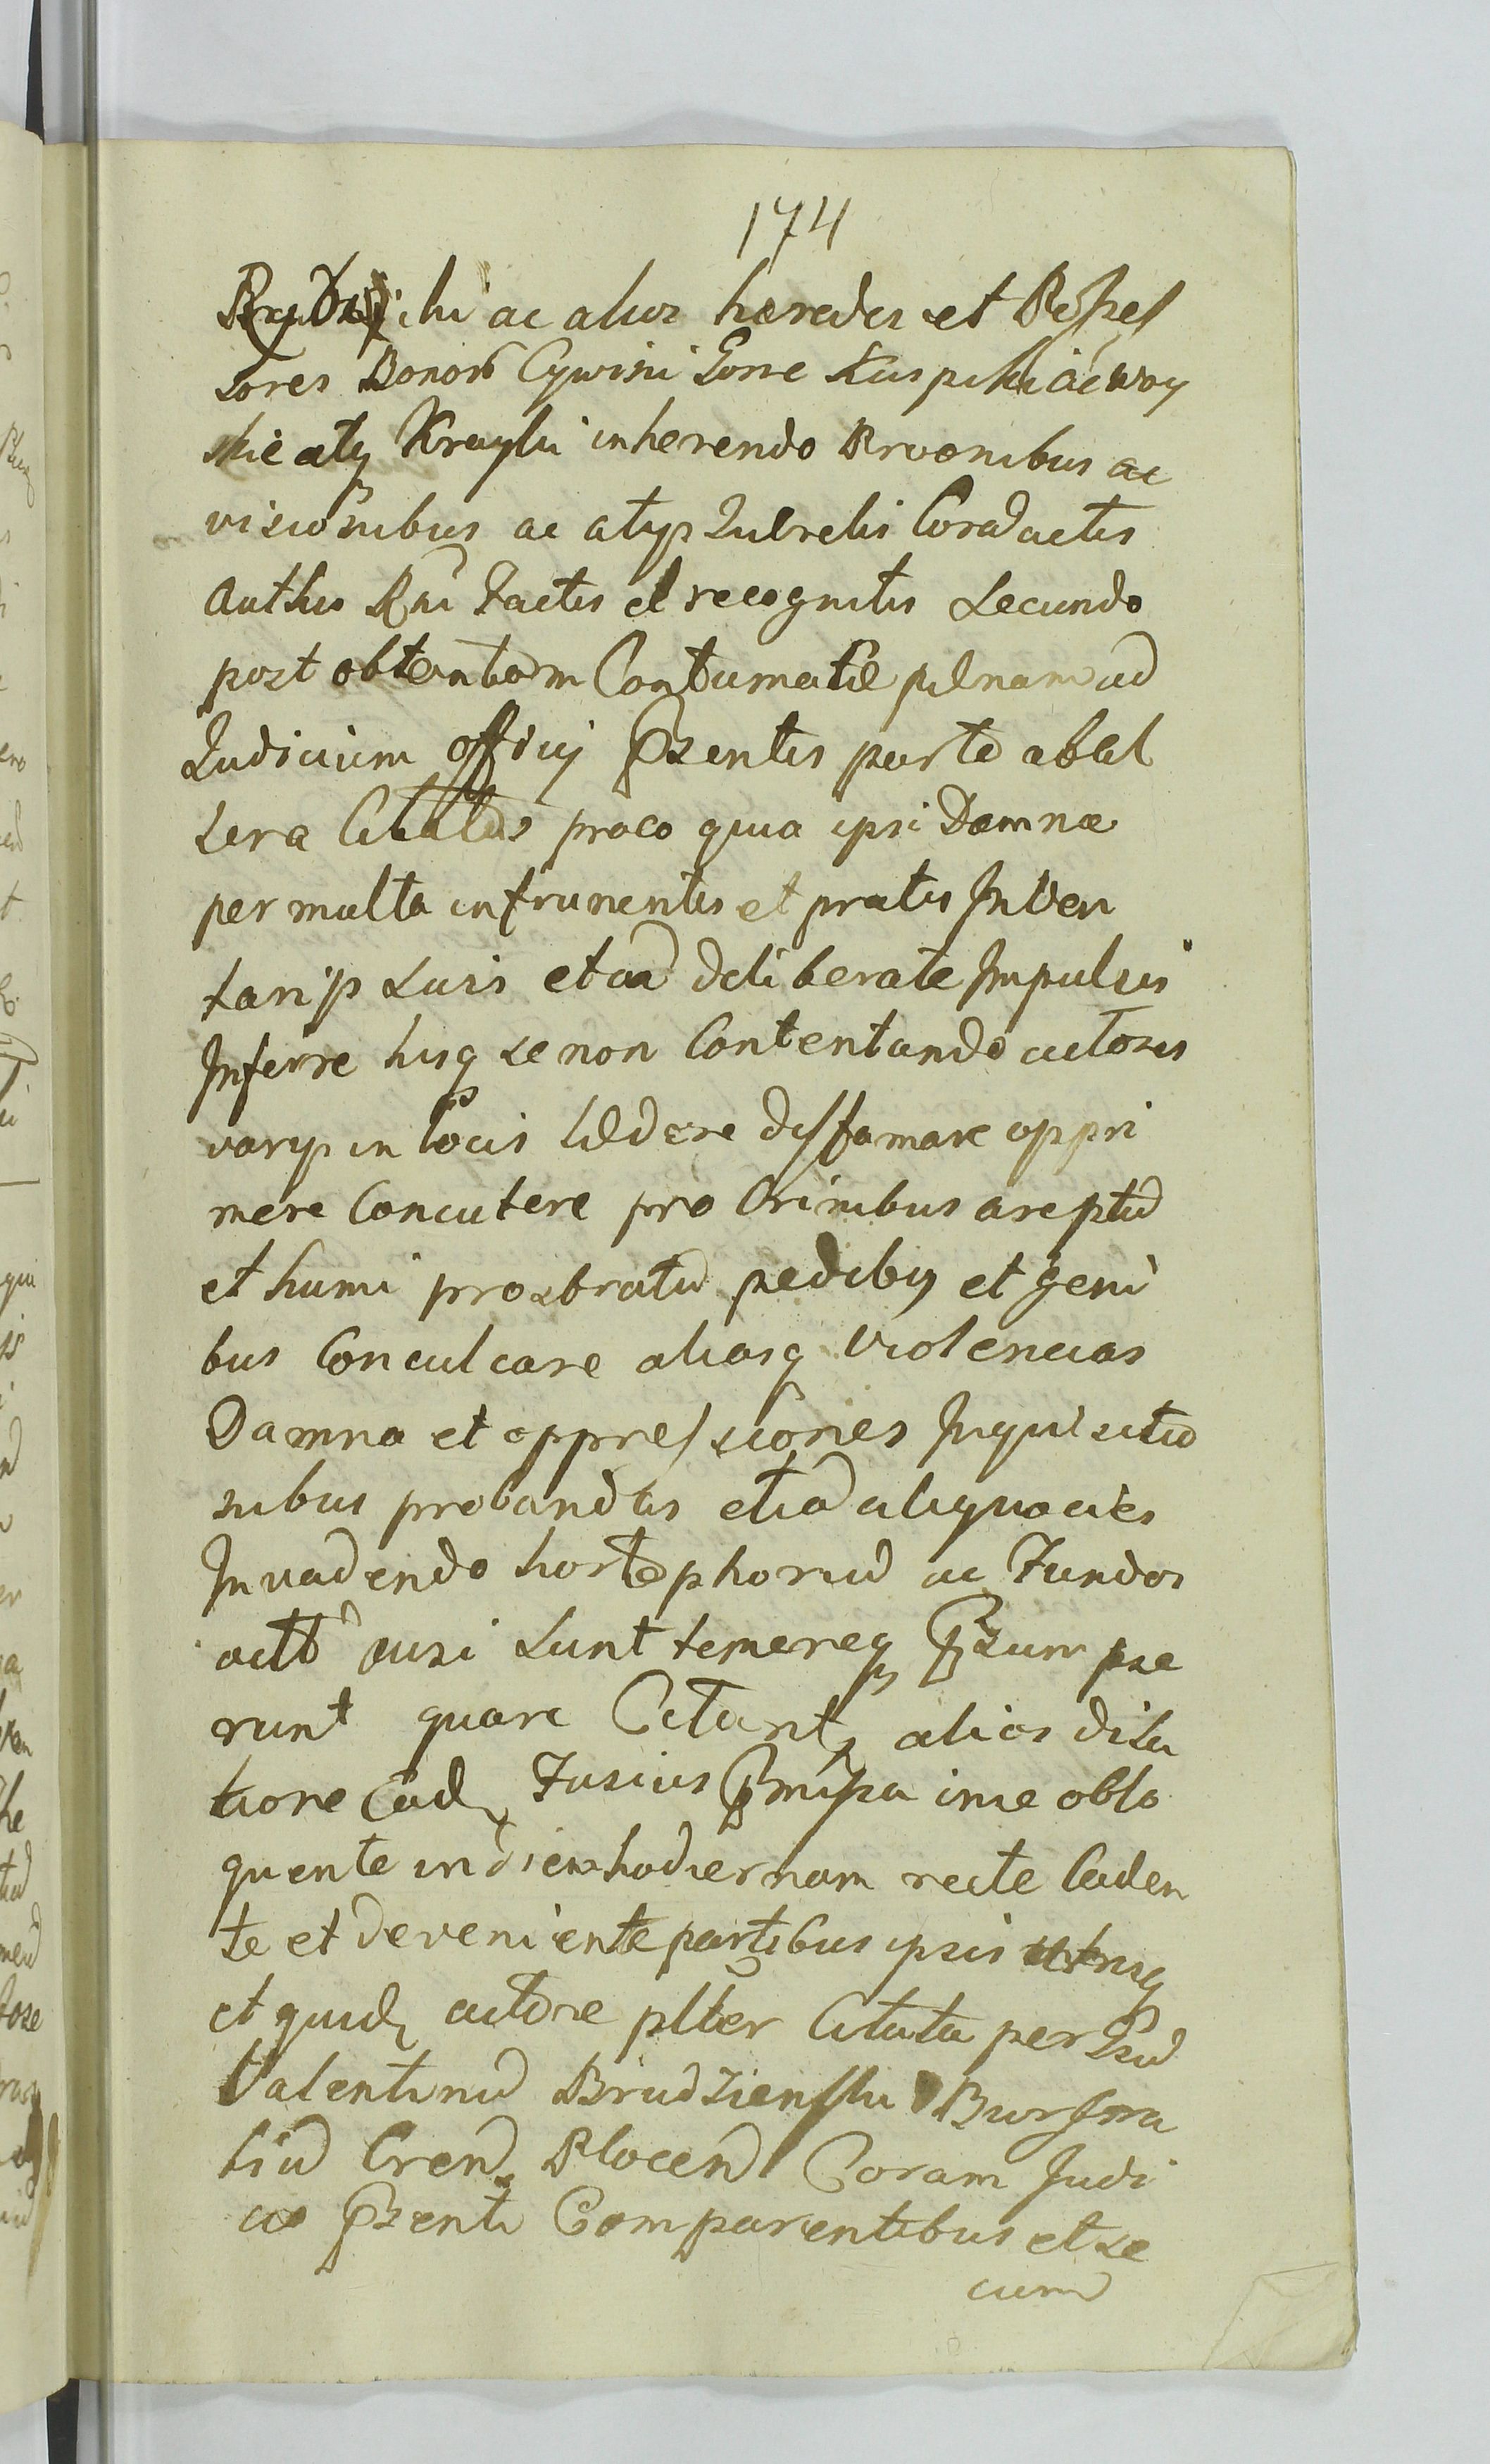 174
ac alios hæredes et Possess
sores Bonor Cywini Gorne Kuspikie ac Woy
skie atq Krayki inherendo Proonibus ac
visionibus ac atys Querelis Cora actis
Authis Rni Factis et recognitis Secundo
post obtentam Contumatie pænam ad
Iudicium officij Pzentis parte ab al
tera Citatus praco quia ipsi Damna
per multa in frumentis et pratis Inven
tarijs suis et cad deliberate Impulsis
Inferre hisq se non Contentando actores
varys in locis lædere diffamare oppri
mere Concutere pro Crinibus areptu
et humi prosbratu pedibq et geni
bus Conculcare aliasq violencias
Damna et oppressiones Inquisitio
nibus probandas etia aliquocies
Invadendo horte phoriu ac Fundos
actor ausi sunt temereq Pzum pse
runt quare Citant alias dila
tione Ead Fusius Pmissa in se oblo
quente in diem hodiernam recte Caden
te et deveniente partibus ipsis utrisq
et quid actore plter Citata per Gsd
Valentinu Brudzienski Burgra
biu Cren Plocen Coram Judi
cio Pzenti Comparentibus et se
cum